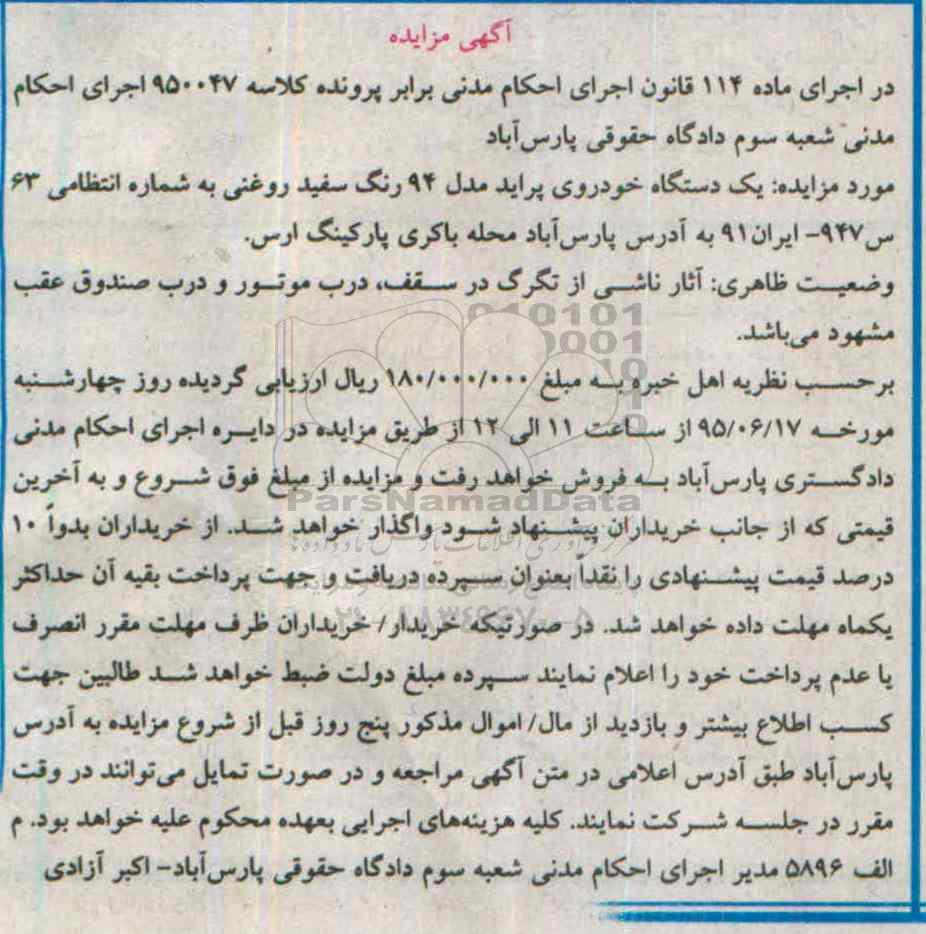 آگهی مزایده
در اجرای ماده ۱۱۴ قانون اجرای احکام مدنی برابر پرونده کلاسه ۹۵۰۰۴۷ اجرای احکام
مدنی شعبه سوم دادگاه حقوقی پارس‌آباد
مورد مزایده: یک دستگاه خودروی پراید مدل ۹۴ رنگ سفید روغنی به شماره انتظامی ۶۳
س۹۴۷- ایران۹۱ به آدرس پارس‌آباد محله باکری پارکینگ ارس.
وضعیت ظاهری: آثار ناشی از تگرگ در سقف، درب موتور و درب صندوق عقب
مشهود می‌باشد.
برحسب نظریه اهل خبره به مبلغ ۱۸۰/۰۰۰/۰۰۰ ریال ارزیابی گردیده روز چهارشنبه
مورخه ۹۵/۰۶/۱۷ از ساعت ۱۱ الی ۱۲ از طریق مزایده در دایره اجرای احکام مدنی
دادگستری پارس‌آباد به فروش خواهد رفت و مزایده از مبلغ فوق شروع و به آخرین
قیمتی که از جانب خریداران پیشنهاد شود واگذار خواهد شد. از خریداران بدواً ۱۰
درصد قیمت پیشنهادی را نقداً بعنوان سپرده دریافت و جهت پرداخت بقیه آن حداکثر
یکماه مهلت داده خواهد شد. در صورتیکه خریدار/ خریداران ظرف مهلت مقرر انصرف
یا عدم پرداخت خود را اعلام نمایند سپرده مبلغ دولت ضبط خواهد شد طالبین جهت
کسب اطلاع بیشتر و بازدید از مال/ اموال مذکور پنج روز قبل از شروع مزایده به آدرس
پارس‌آباد طبق آدرس اعلامی در متن آگهی مراجعه و در صورت تمایل می‌توانند در وقت
مقرر در جلسه شرکت نمایند. کلیه هزینه‌های اجرایی بعهده محکوم علیه خواهد بود. م
الف ۵۸۹۶ مدیر اجرای احکام مدنی شعبه سوم دادگاه حقوقی پارس‌آباد- اکبر آزادی
ParsNamadData